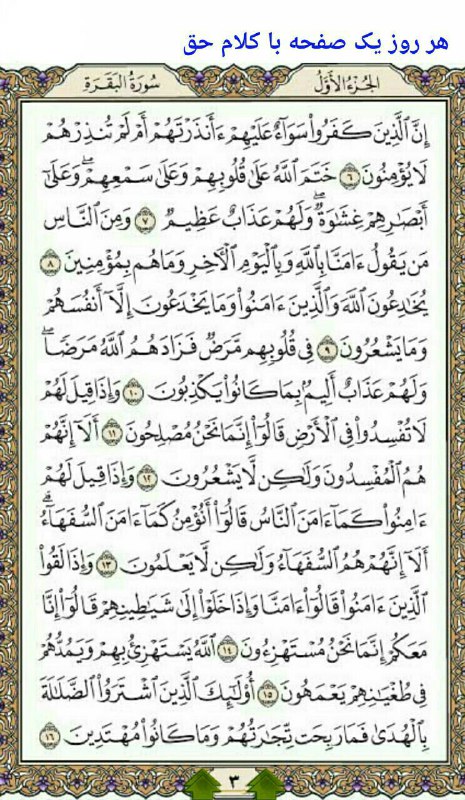 هر روز یک صفحه با کلام حق
الجُزءُ الأَوَّلُ سُورَةُ البَقَرَةِ
إِنَّ ٱلَّذِينَ كَفَرُوا۟ سَوَآءٌ عَلَيْهِمْ ءَأَنذَرْتَهُمْ أَمْ لَمْ تُنذِرْهُمْ
لَا يُؤْمِنُونَ ٦ خَتَمَ ٱللَّهُ عَلَىٰ قُلُوبِهِمْ وَعَلَىٰ سَمْعِهِمْ ۖ وَعَلَىٰٓ
أَبْصَٰرِهِمْ غِشَٰوَةٌ ۖ وَلَهُمْ عَذَابٌ عَظِيمٌ ٧ وَمِنَ ٱلنَّاسِ
مَن يَقُولُ ءَامَنَّا بِٱللَّهِ وَبِٱلْيَوْمِ ٱلْءَاخِرِ وَمَا هُم بِمُؤْمِنِينَ ٨
يُخَٰدِعُونَ ٱللَّهَ وَٱلَّذِينَ ءَامَنُوا۟ وَمَا يَخْدَعُونَ إِلَّآ أَنفُسَهُمْ
وَمَا يَشْعُرُونَ ٩ فِى قُلُوبِهِم مَّرَضٌ فَزَادَهُمُ ٱللَّهُ مَرَضًا ۖ
وَلَهُمْ عَذَابٌ أَلِيمٌۢ بِمَا كَانُوا۟ يَكْذِبُونَ ١٠ وَإِذَا قِيلَ لَهُمْ
لَا تُفْسِدُوا۟ فِى ٱلْأَرْضِ قَالُوٓا۟ إِنَّمَا نَحْنُ مُصْلِحُونَ ١١ أَلَآ إِنَّهُمْ
هُمُ ٱلْمُفْسِدُونَ وَلَٰكِن لَّا يَشْعُرُونَ ١٢ وَإِذَا قِيلَ لَهُمْ
ءَامِنُوا۟ كَمَآ ءَامَنَ ٱلنَّاسُ قَالُوٓا۟ أَنُؤْمِنُ كَمَآ ءَامَنَ ٱلسُّفَهَآءُ ۗ
أَلَآ إِنَّهُمْ هُمُ ٱلسُّفَهَآءُ وَلَٰكِن لَّا يَعْلَمُونَ ١٣ وَإِذَا لَقُوا۟
ٱلَّذِينَ ءَامَنُوا۟ قَالُوٓا۟ ءَامَنَّا وَإِذَا خَلَوْا۟ إِلَىٰ شَيَٰطِينِهِمْ قَالُوٓا۟ إِنَّا
مَعَكُمْ إِنَّمَا نَحْنُ مُسْتَهْزِءُونَ ١٤ ٱللَّهُ يَسْتَهْزِئُ بِهِمْ وَيَمُدُّهُمْ
فِى طُغْيَٰنِهِمْ يَعْمَهُونَ ١٥ أُو۟لَٰٓئِكَ ٱلَّذِينَ ٱشْتَرَوُا۟ ٱلضَّلَٰلَةَ
بِٱلْهُدَىٰ فَمَا رَبِحَت تِّجَٰرَتُهُمْ وَمَا كَانُوا۟ مُهْتَدِينَ ١٦
٣